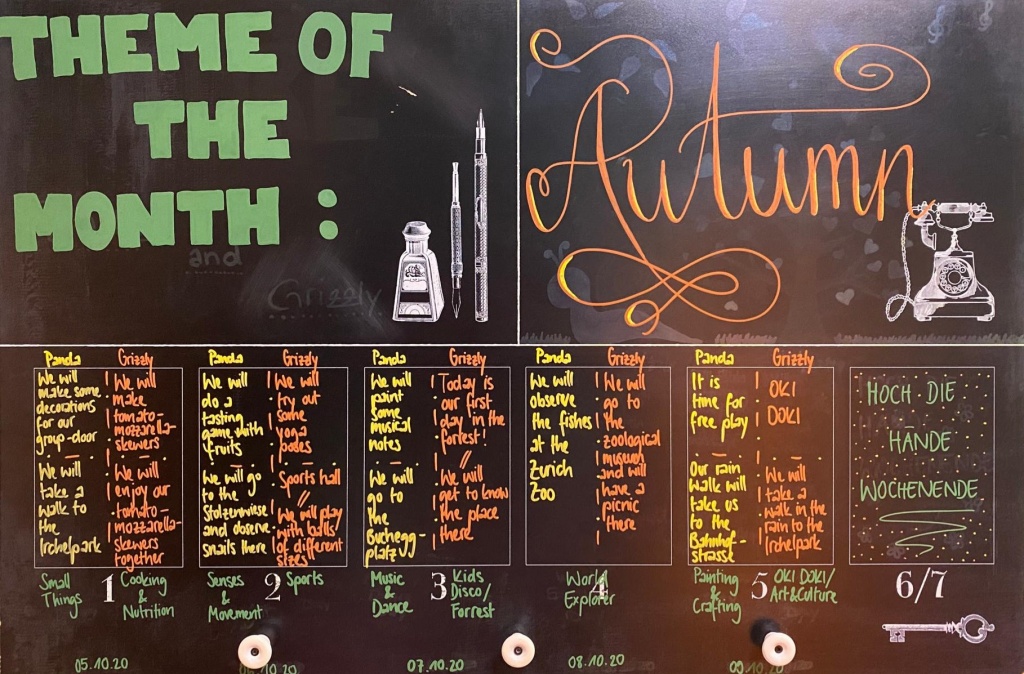 THEME OF
THE
MONTH :
Autumn
and
Grizzly
Panda
We will
make some
decorations
for our
group-door
We will
take a
walk to
the
Irchelpark
Grizzly
We will
make
tomato-
mozzarella-
skewers
We will
enjoy our
tomato-
mozzarella-
skewers
together
Small
Things
1
Cooking
&
Nutrition
05.10.20
Panda
We will
do a
tasting
game with
fruits
We will go
to the
Stolzenwiese
and observe
snails there
Grizzly
We will
try out
some
yoga
poses
Sports hall
//
We will play
with balls
of different
sizes
Senses
&
Movement
2
Sports
06.10.20
Panda
We will
paint
some
musical
notes
We will
go to
the
Buchegg-
platz
Grizzly
Today is
our first
day in the
forrest!
//
We will
get to know
the place
there
Music
&
Dance
3
Kids
Disco/
Forrest
07.10.20
Panda
We will
observe
the fishes
at the
Zurich
Zoo
Grizzly
We will
go to
the
zoological
museum
and will
have a
picnic
there
World
Explorer
4
08.10.20
Panda
It is
time for
free play
Our rain
walk will
take us
to the
Bahnhof-
strasse
Grizzly
OKI
DOKI
We will
take a
walk in the
rain to the
Irchelpark
Painting
&
Crafting
5
OKI DOKI/
Art&Culture
09.10.20
HOCH DIE
HÄNDE
WOCHENENDE
6/7